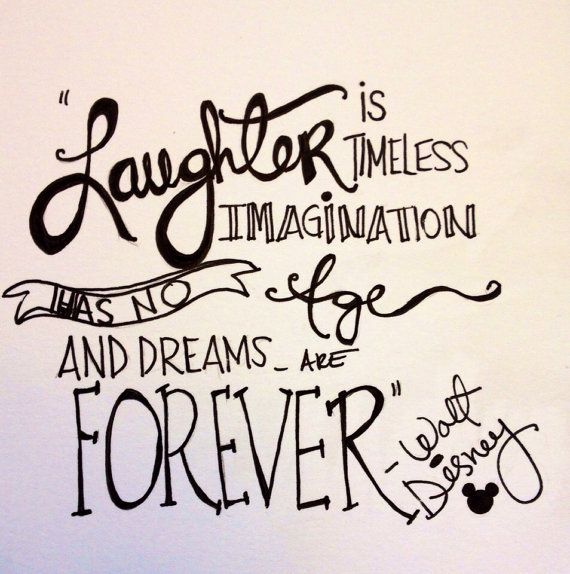 "Laughter is
TIMELESS
IMAGiNATION
HAS NO Age
AND DREAMS - ARE
FOREVER"
- Walt
Disney